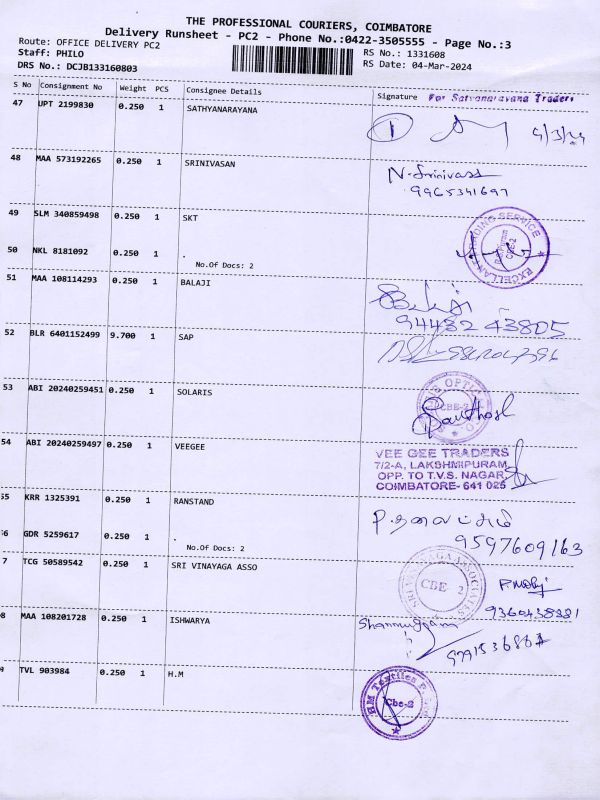 THE PROFESSIONAL COURIERS, COIMBATORE
Delivery Runsheet - PC2 - Phone No.:0422-3505555 - Page No.:3
Route: OFFICE DELIVERY PC2
RS No.: 1331608
Staff: PHILO
RS Date: 04-Mar-2024
DRS No.: DCJB133160803
S No Consignment No Weight PCS Consignee Details Signature For Satyanarayana Traders
47 UPT 2199830 0.250 1 SATHYANARAYANA
1 4/3/24
48 MAA 573192265 0.250 1 SRINIVASAN N. Srinivasa
9965341697
49 SLM 340859498 0.250 1 SKT
TRADING SERVICE
CBE-2
50 NKL 8181092 0.250 1 .
No.Of Docs: 2
51 MAA 108114293 0.250 1 BALAJI Balaji
94432 43805
52 BLR 6401152499 9.700 1 SAP
53 ABI 20240259451 0.250 1 SOLARIS
CBE-2
Santhosh
54 ABI 20240259497 0.250 1 VEEGEE
VEE GEE TRADERS
7/2-A, LAKSHMIPURAM,
OPP. TO T.V.S. NAGAR,
COIMBATORE- 641 025
55 KRR 1325391 0.250 1 RANSTAND
9597609163
56 GDR 5259617 0.250 1 .
No.Of Docs: 2
7 TCG 50589542 0.250 1 SRI VINAYAGA ASSO
CBE - 2
9360438381
8 MAA 108201728 0.250 1 ISHWARYA Shanmuggam
9 TVL 903984 0.250 1 H.M
Cbe-2